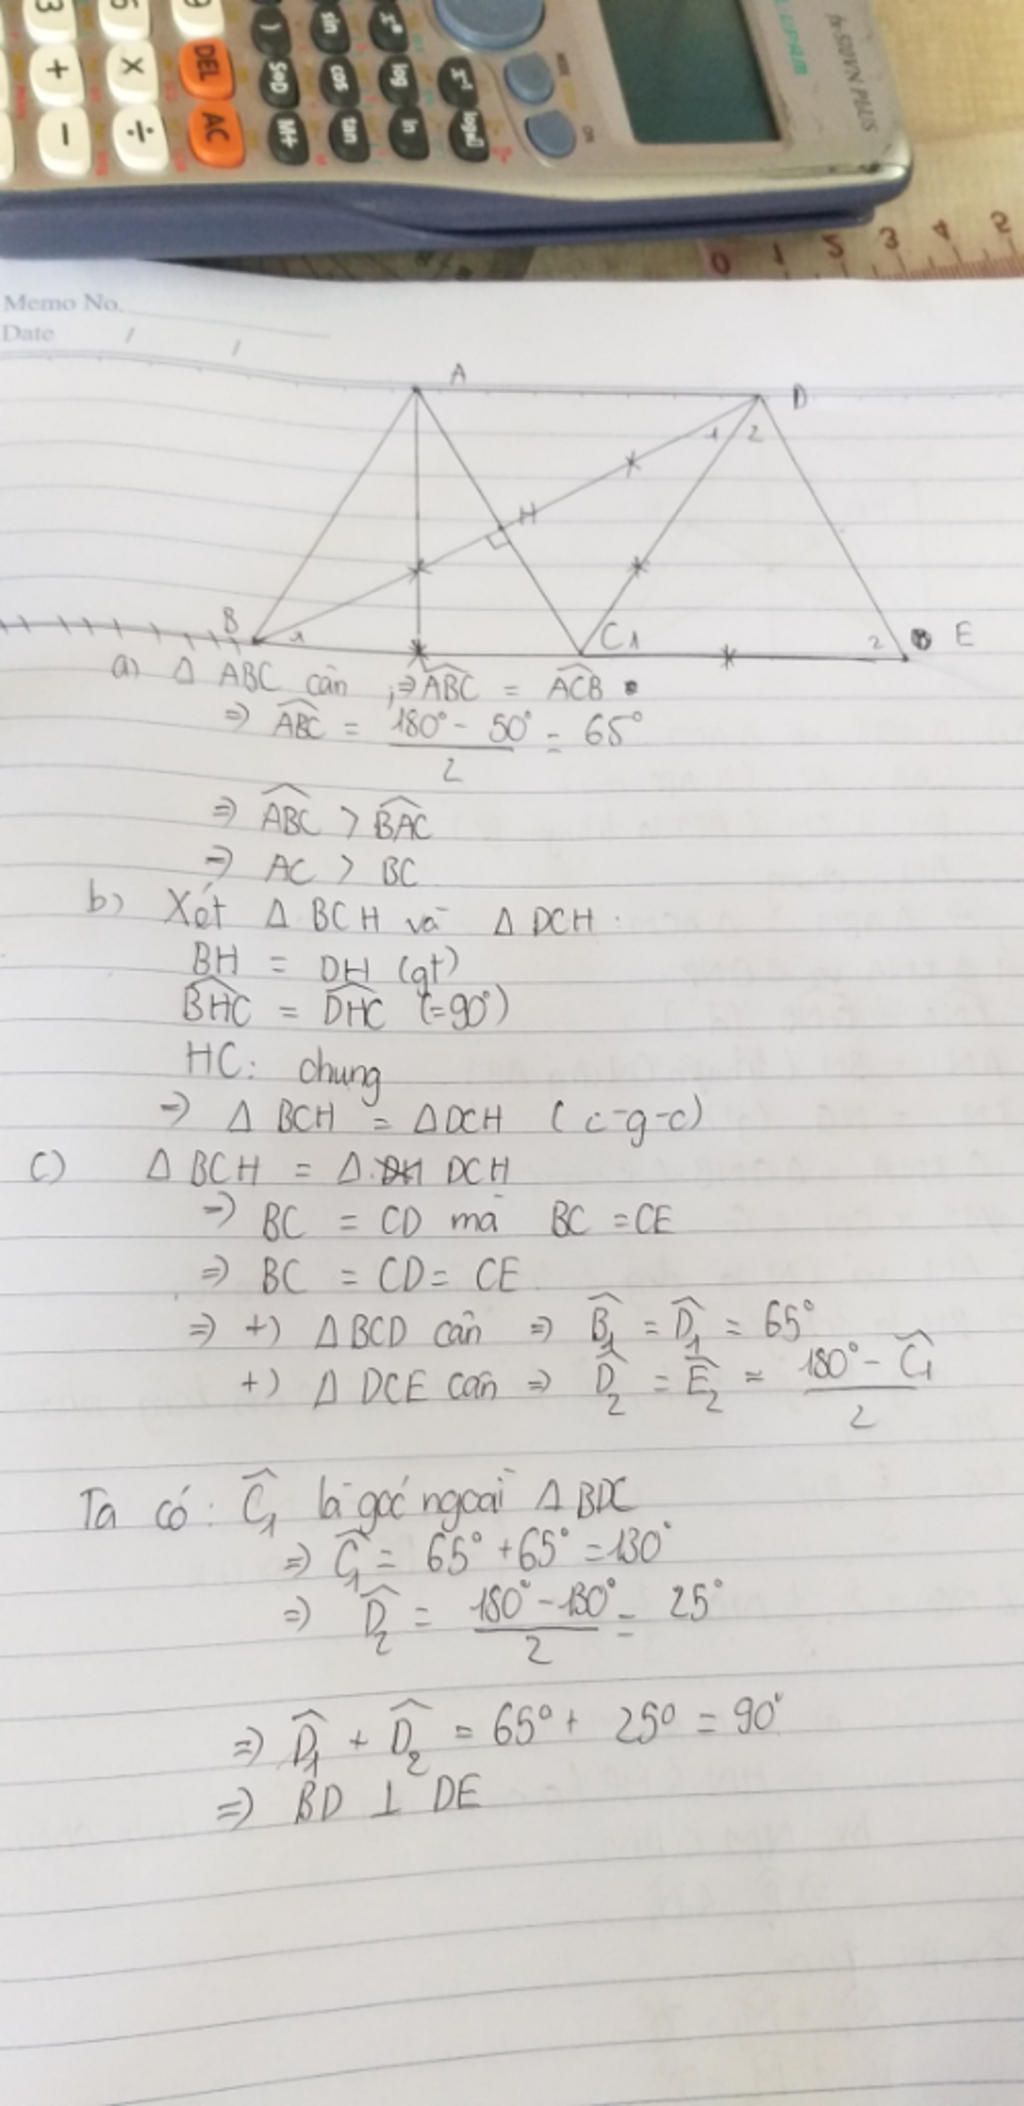 3
+
-
×
÷
DEL
AC
)
S⇔D
M+
sin
cos
tan
log
ln
fx-570VN PLUS
0 1 2 3 4 5
Memo No.
Date / /
A
D
1 2
H
B
1
C1
2
E
a) Δ ABC cân , ⇒ ABC = ACB
⇒ ABC = (180° - 50°)/2 = 65°
⇒ ABC > BAC
⇒ AC > BC
b) Xét Δ BCH và Δ DCH :
BH = DH (gt)
BHC = DHC (=90°)
HC: chung
⇒ Δ BCH = Δ DCH (c-g-c)
c) Δ BCH = Δ DCH
⇒ BC = CD mà BC = CE
⇒ BC = CD = CE
⇒ +) Δ BCD cân ⇒ B1 = D1 = 65°
+) Δ DCE cân ⇒ D2 = E2 = (180° - C1)/2
Ta có : C1 là góc ngoài Δ BDC
⇒ C1 = 65° + 65° = 130°
⇒ D2 = (180° - 130°)/2 = 25°
⇒ D1 + D2 = 65° + 25° = 90°
⇒ BD ⊥ DE